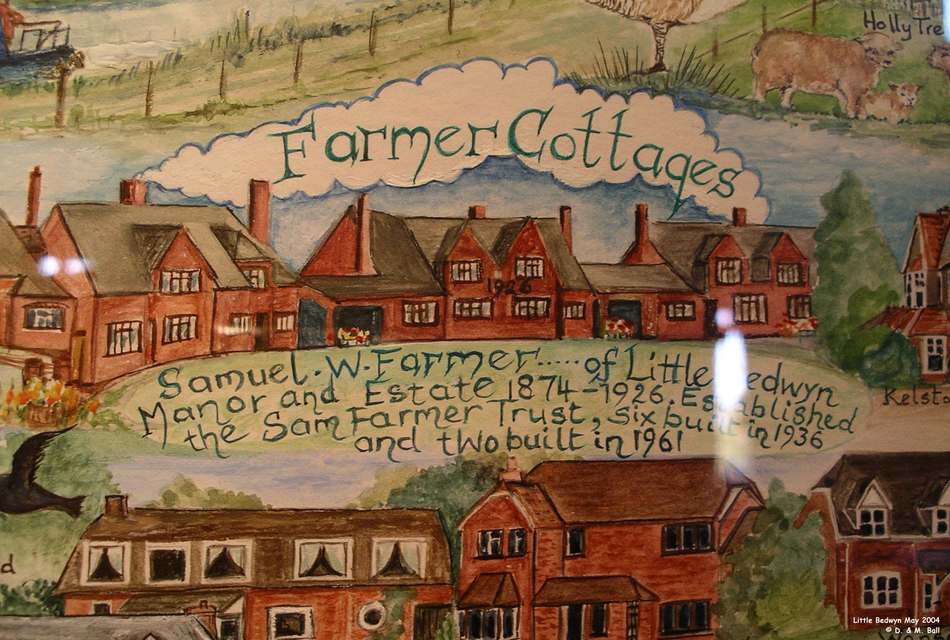 Holly Tre
Farmer Cottages
1926
Samuel. W. Farmer..... of Little Bedwyn
Manor and Estate 1874-1926. Established
the Sam Farmer Trust, six built in 1936
and two built in 1961
Kelsto
d
Little Bedwyn May 2004
© D. & M. Ball